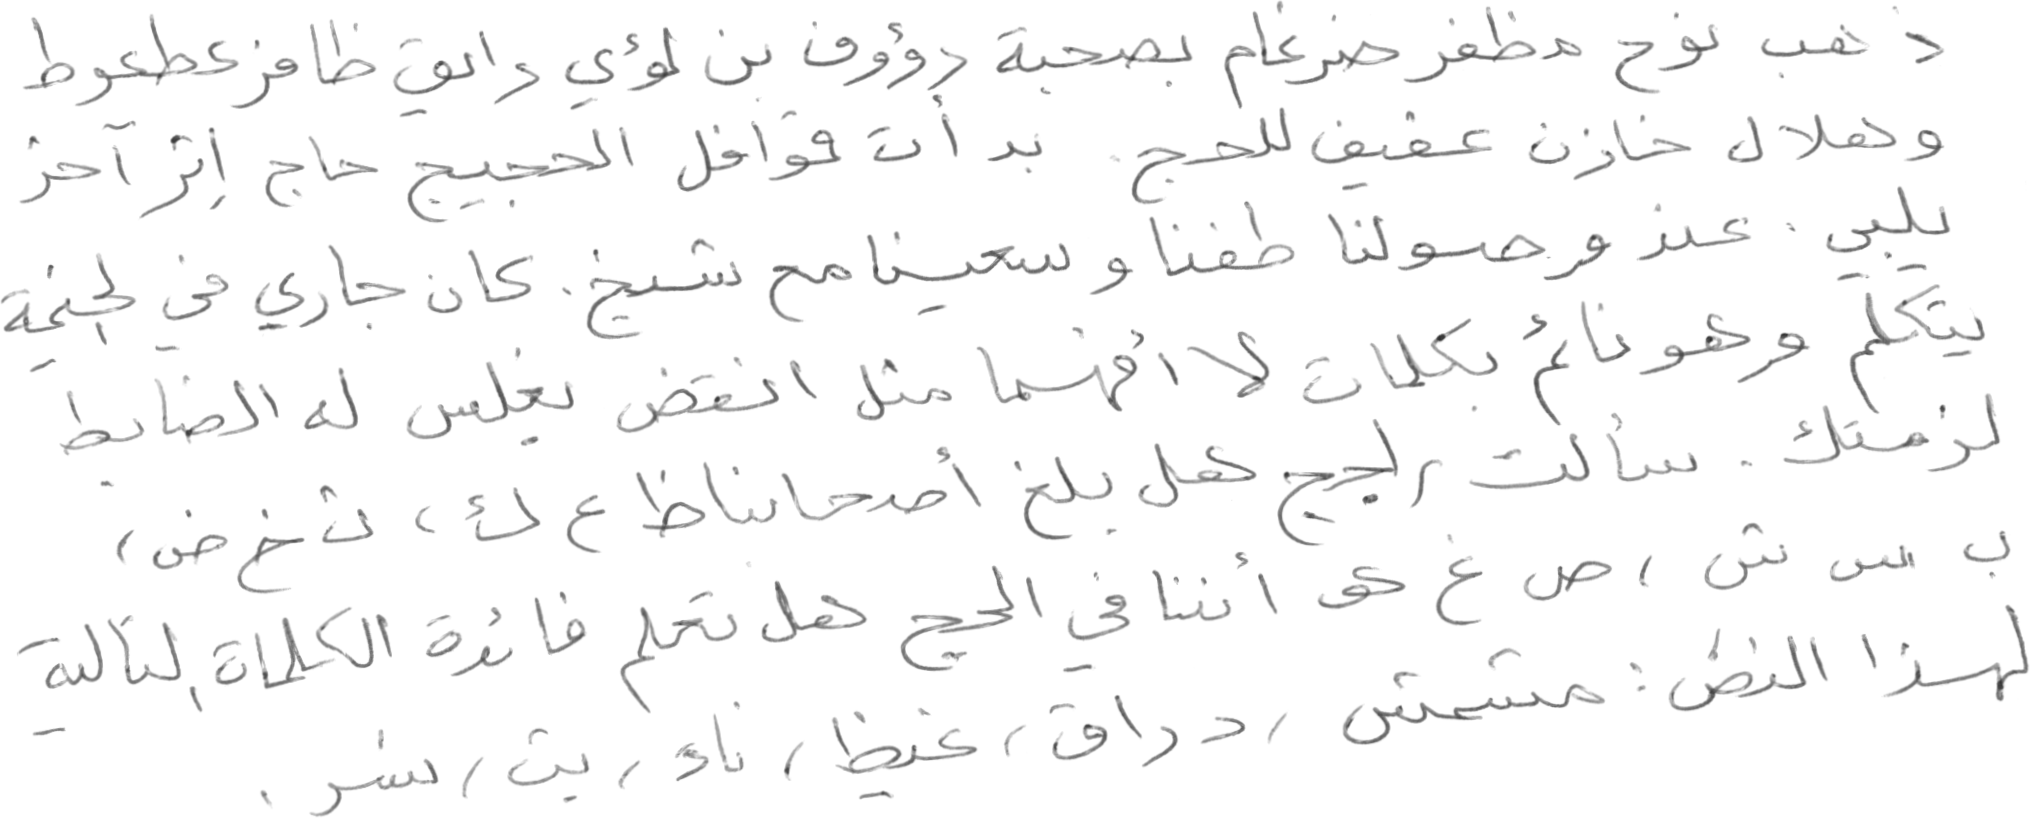 ذهب نوح مظفر ضرغام بصحبة رؤوف بن لؤي رايق ظافر عطعوط
وهلال خازن عفيف للحج. بدأت قوافل الحجيج حاج إثر آخر
يلبي. عند وصولنا طفنا وسعينا مع شيخ. كان جاري في الخيمة
يتكلم وهو نائم بكلمات لا افهمها مثل انقض يغلس له الضابط
لزمتك. سألت راجح هل بلغ أصحابنا ظ ع ك، ث خ ض،
ب س ش، ص غ ى أننا في الحج هل تعلم فائدة الكلمات التالية
لهذا النص: مشمش، دراق، غيظ، ناء، يث، نشر.